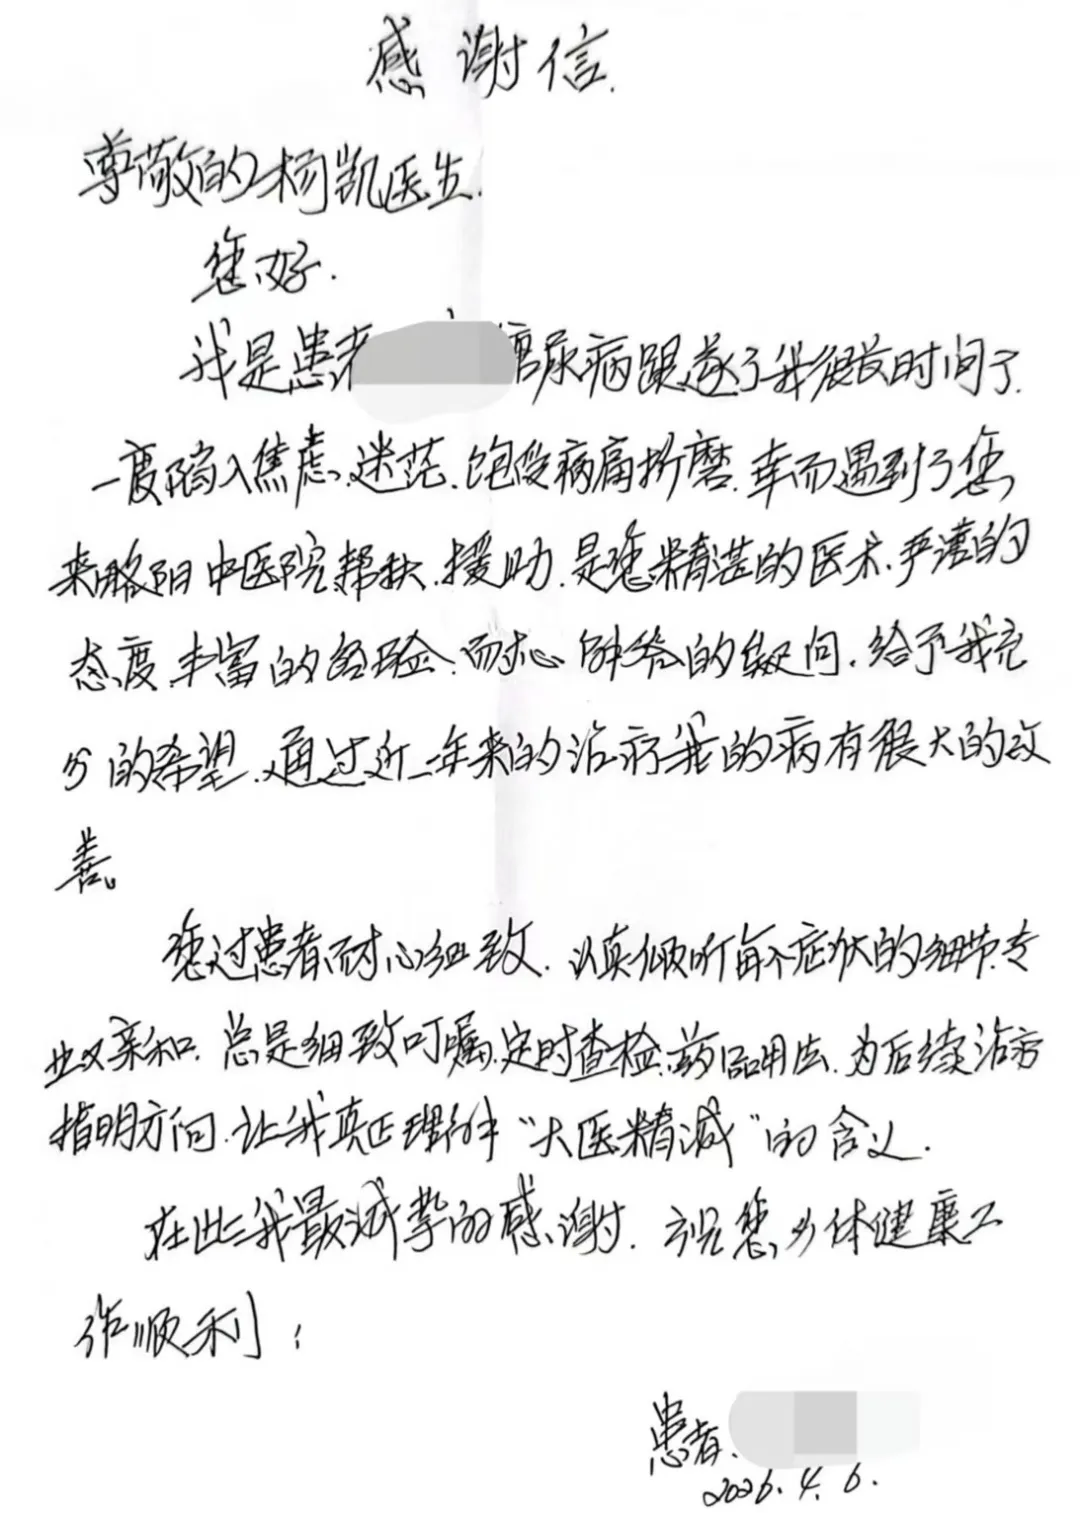 感谢信.
尊敬的杨凯医生.
您好.
我是患者 糖尿病跟逐了我很长时间了.
一度陷入焦虑、迷茫.饱受病痛折磨.幸而遇到了您
来略阳中医院帮扶.援助.是您精湛的医术.严谨的
态度.丰富的经验.耐心解答的疑问.给予我充
分的希望.通过近一年来的治疗我的病有很大的改
善。
您过患者耐心细致.认真倾听每个症状的细节.专
业又亲和.总是细致叮嘱.定时查检.药品用法.为后续治疗
指明方向.让我真正理解“大医精诚”的含义.
在此我最诚挚的感谢.祝您身体健康工
作顺利!
患者.
2026.4.6.